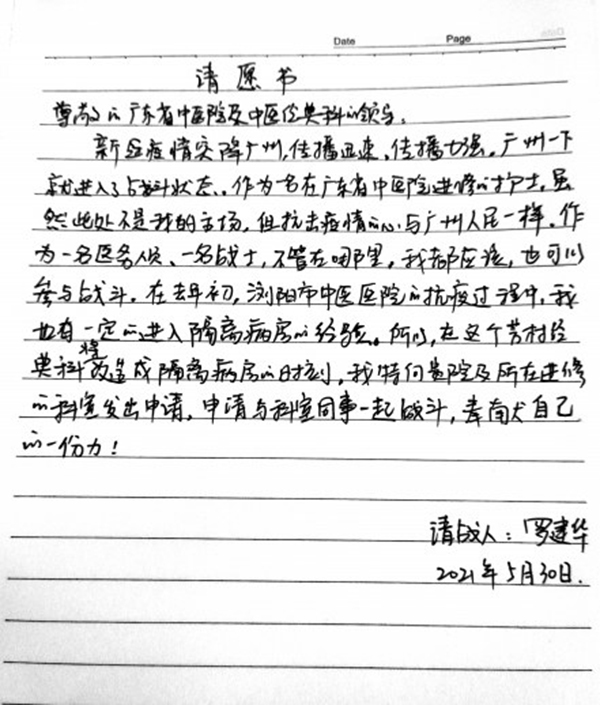 Date Page
请愿书
尊敬的广东省中医院及中医经典科的领导:
新冠疫情突降广州,传播迅速、传播力强。广州一下
就进入了战斗状态。作为一名在广东省中医院进修的护士,虽
然此处不是我的主场,但抗击疫情的心与广州人民一样。作
为一名医务人员、一名战士,不管在哪里,我都应该,也可以
参与战斗。在去年初,浏阳市中医医院的抗疫过程中,我
也有一定的进入隔离病房的经验。所以,在这个芳村经
典科将改造成隔离病房的时刻,我特向贵院及所在进修
的科室发出申请,申请与科室同事一起战斗,奉献自己
的一份力!
请战人:罗建华
2021年5月30日.